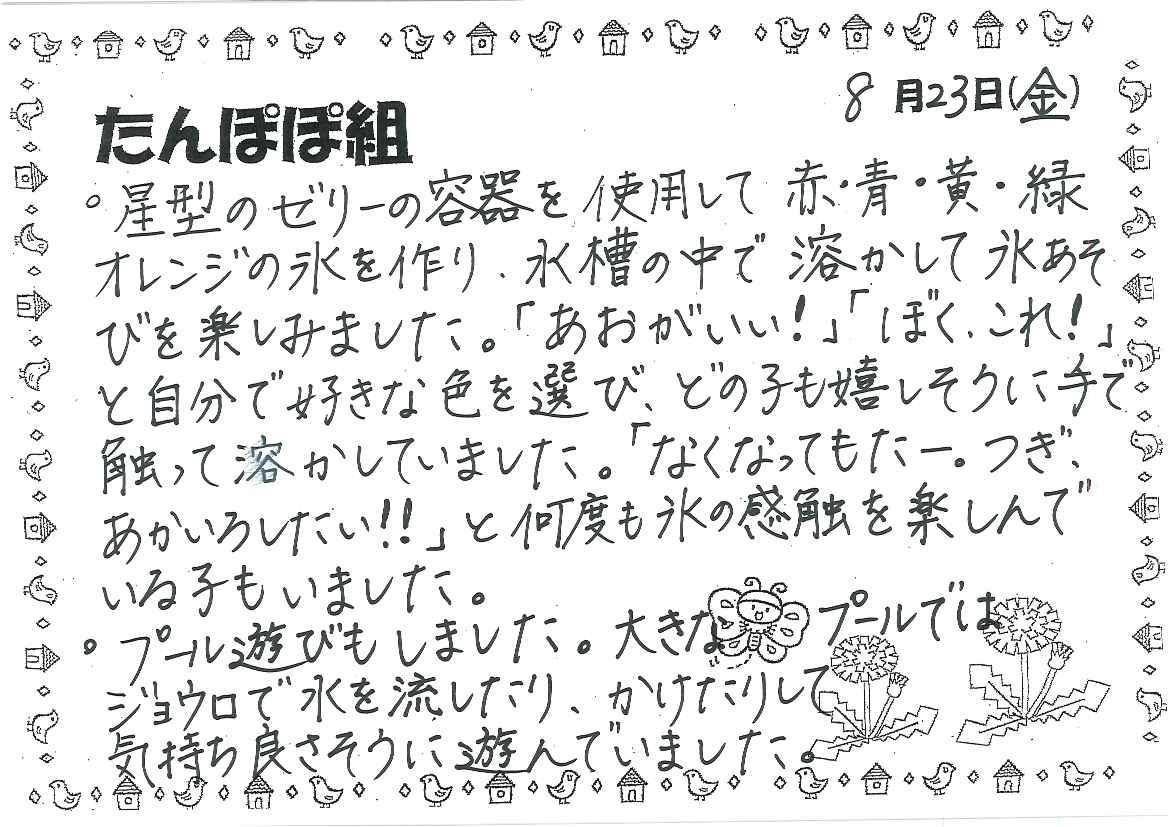 たんぽぽ組
8月23日(金)
。星型のゼリーの容器を使用して赤・青・黄・緑
オレンジの氷を作り、水槽の中で溶かして氷あそ
びを楽しみました。「あおがいい！」「ぼく、これ！」
と自分で好きな色を選び、どの子も嬉しそうに手で
触って溶かしていました。「なくなってもたー。つぎ、
あかいろしたい!!」と何度も氷の感触を楽しんで
いる子もいました。
。プール遊びもしました。大きなプールでは
ジョウロで水を流したり、かけたりして
気持ち良さそうに遊んでいました。